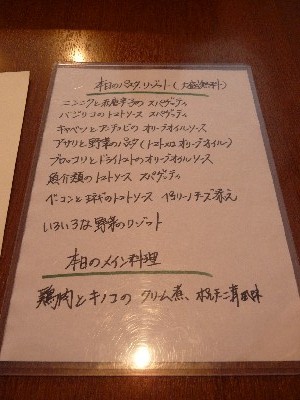 本日のパスタ、リゾット(大盛無料)
ニンニクと赤唐辛子の スパゲッティ
バジリコのトマトソース スパゲッティ
キャベツとアンチョビの オリーブオイルソース
アサリと野菜のパスタ(トマト or オリーブオイル)
ブロッコリとドライトマトのオリーブオイルソース
魚介類のトマトソース スパゲッティ
ベーコンと玉ネギのトマトソース ペコリーノチーズ添え
いろいろな野菜のリゾット
本日のメイン料理
鶏肉とキノコの クリーム煮、風味